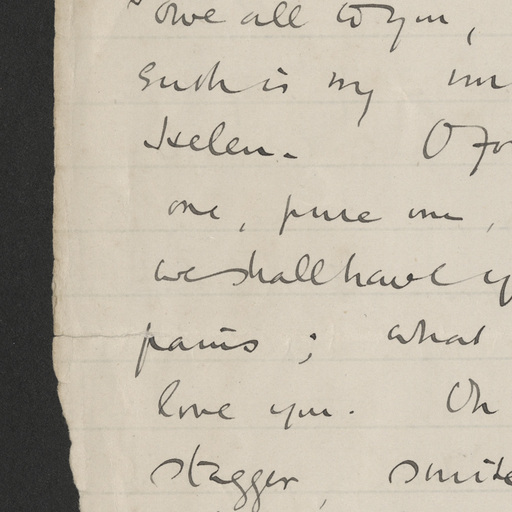 owe all to you,
Such is my
Helen. O
one, pure one,
we shall have
pains; what
love you. Oh
stagger, smite